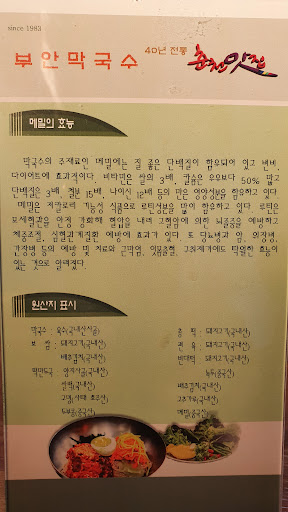 since 1983
40년 전통
춘천맛집
부안막국수
메밀의 효능
막국수의 주재료인 메밀에는 질 좋은 단백질이 함유되어 있고 변비,
다이어트에 효과적이다. 비타민은 쌀의 3배, 칼슘은 우유보다 50% 많고
단백질은 3배, 철분 15배, 나이신 18배 등의 많은 영양성분을 함유하고 있다.
메밀은 저칼로리 기능성 식품으로 루틴성분을 많이 함유하고 있다. 루틴은
모세혈관을 안정 강화해 혈압을 내려 고혈압에 의한 뇌졸중을 예방하고
체중조절, 심혈관계질환 예방에 효과가 있다. 또 당뇨병과 암, 위장병,
간장병 등의 예방 및 치료와 근막염, 이질출혈, 구취제거에도 탁월한 효능이
있는 것으로 알려졌다.
원산지 표시
막국수 : 육수(국내산사골)
보 쌈 : 돼지고기(국내산)
배추김치(국내산)
떡만두국 : 양지사골(국내산)
쌀떡(국내산)
고명(사태 호주산)
두부(중국산)
족 발 : 돼지고기(국내산)
편 육 : 돼지고기(국내산)
빈대떡 돼지고기(국내산)
녹두(중국산)
배추김치(국내산)
고추가루(국내산)
메밀(중국산)